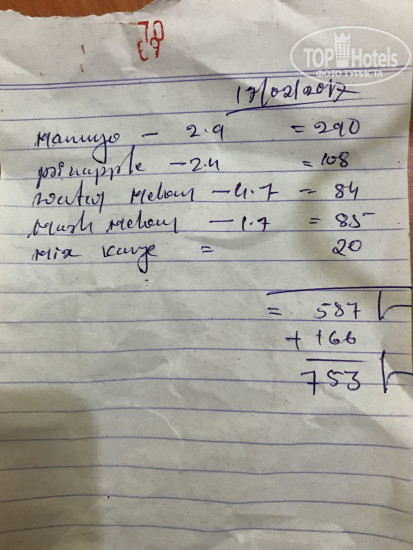 TOP Hotels
ФОТО ТУРИСТА
70
17/02/2017
mamgo - 2.9 = 290
pinapple - 2.4 = 108
water melon - 4.7 = 84
mush melon - 1.7 = 85
mix = 20
= 587
+ 166
753